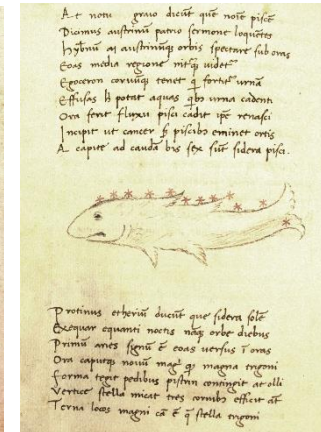 At notu graio dicūt que noīe piscē
Dicimus austrinū patrio sermone loquētes
Hybnū ai austrinūque orbis spectare sub oras
Eoas media regione nitq videt
Egoceron corvūque tenet q fortit urnā
Effusas h potat aquas qbs urna cadenti
Ora ferit fluxu pisci cadit ipe renasci
Incipit ut cancer h piscibs eminet ortis
A capite ad caudā bis sex sūt sidera pisci.
Protinus etheriū ducūt que sidera solē
Exequar equanti noctis nāq orbe diebus
Primū aries signū ē eoas versus ī oras
Ora caputque novū mag qs magna trigoni
Forma tegit pedibus pistrin contingit at olli
Vertice stella micat tres cornibs efficit alt
Terna locos magni cā ē q stella trigoni